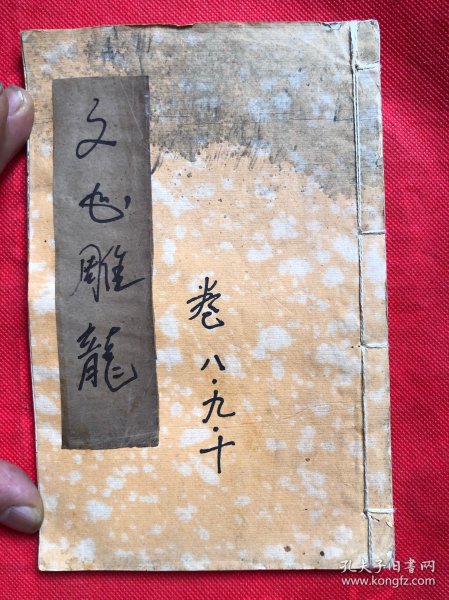 文心雕龍
卷八·九·十
孔夫子旧书网
www.kongfz.com